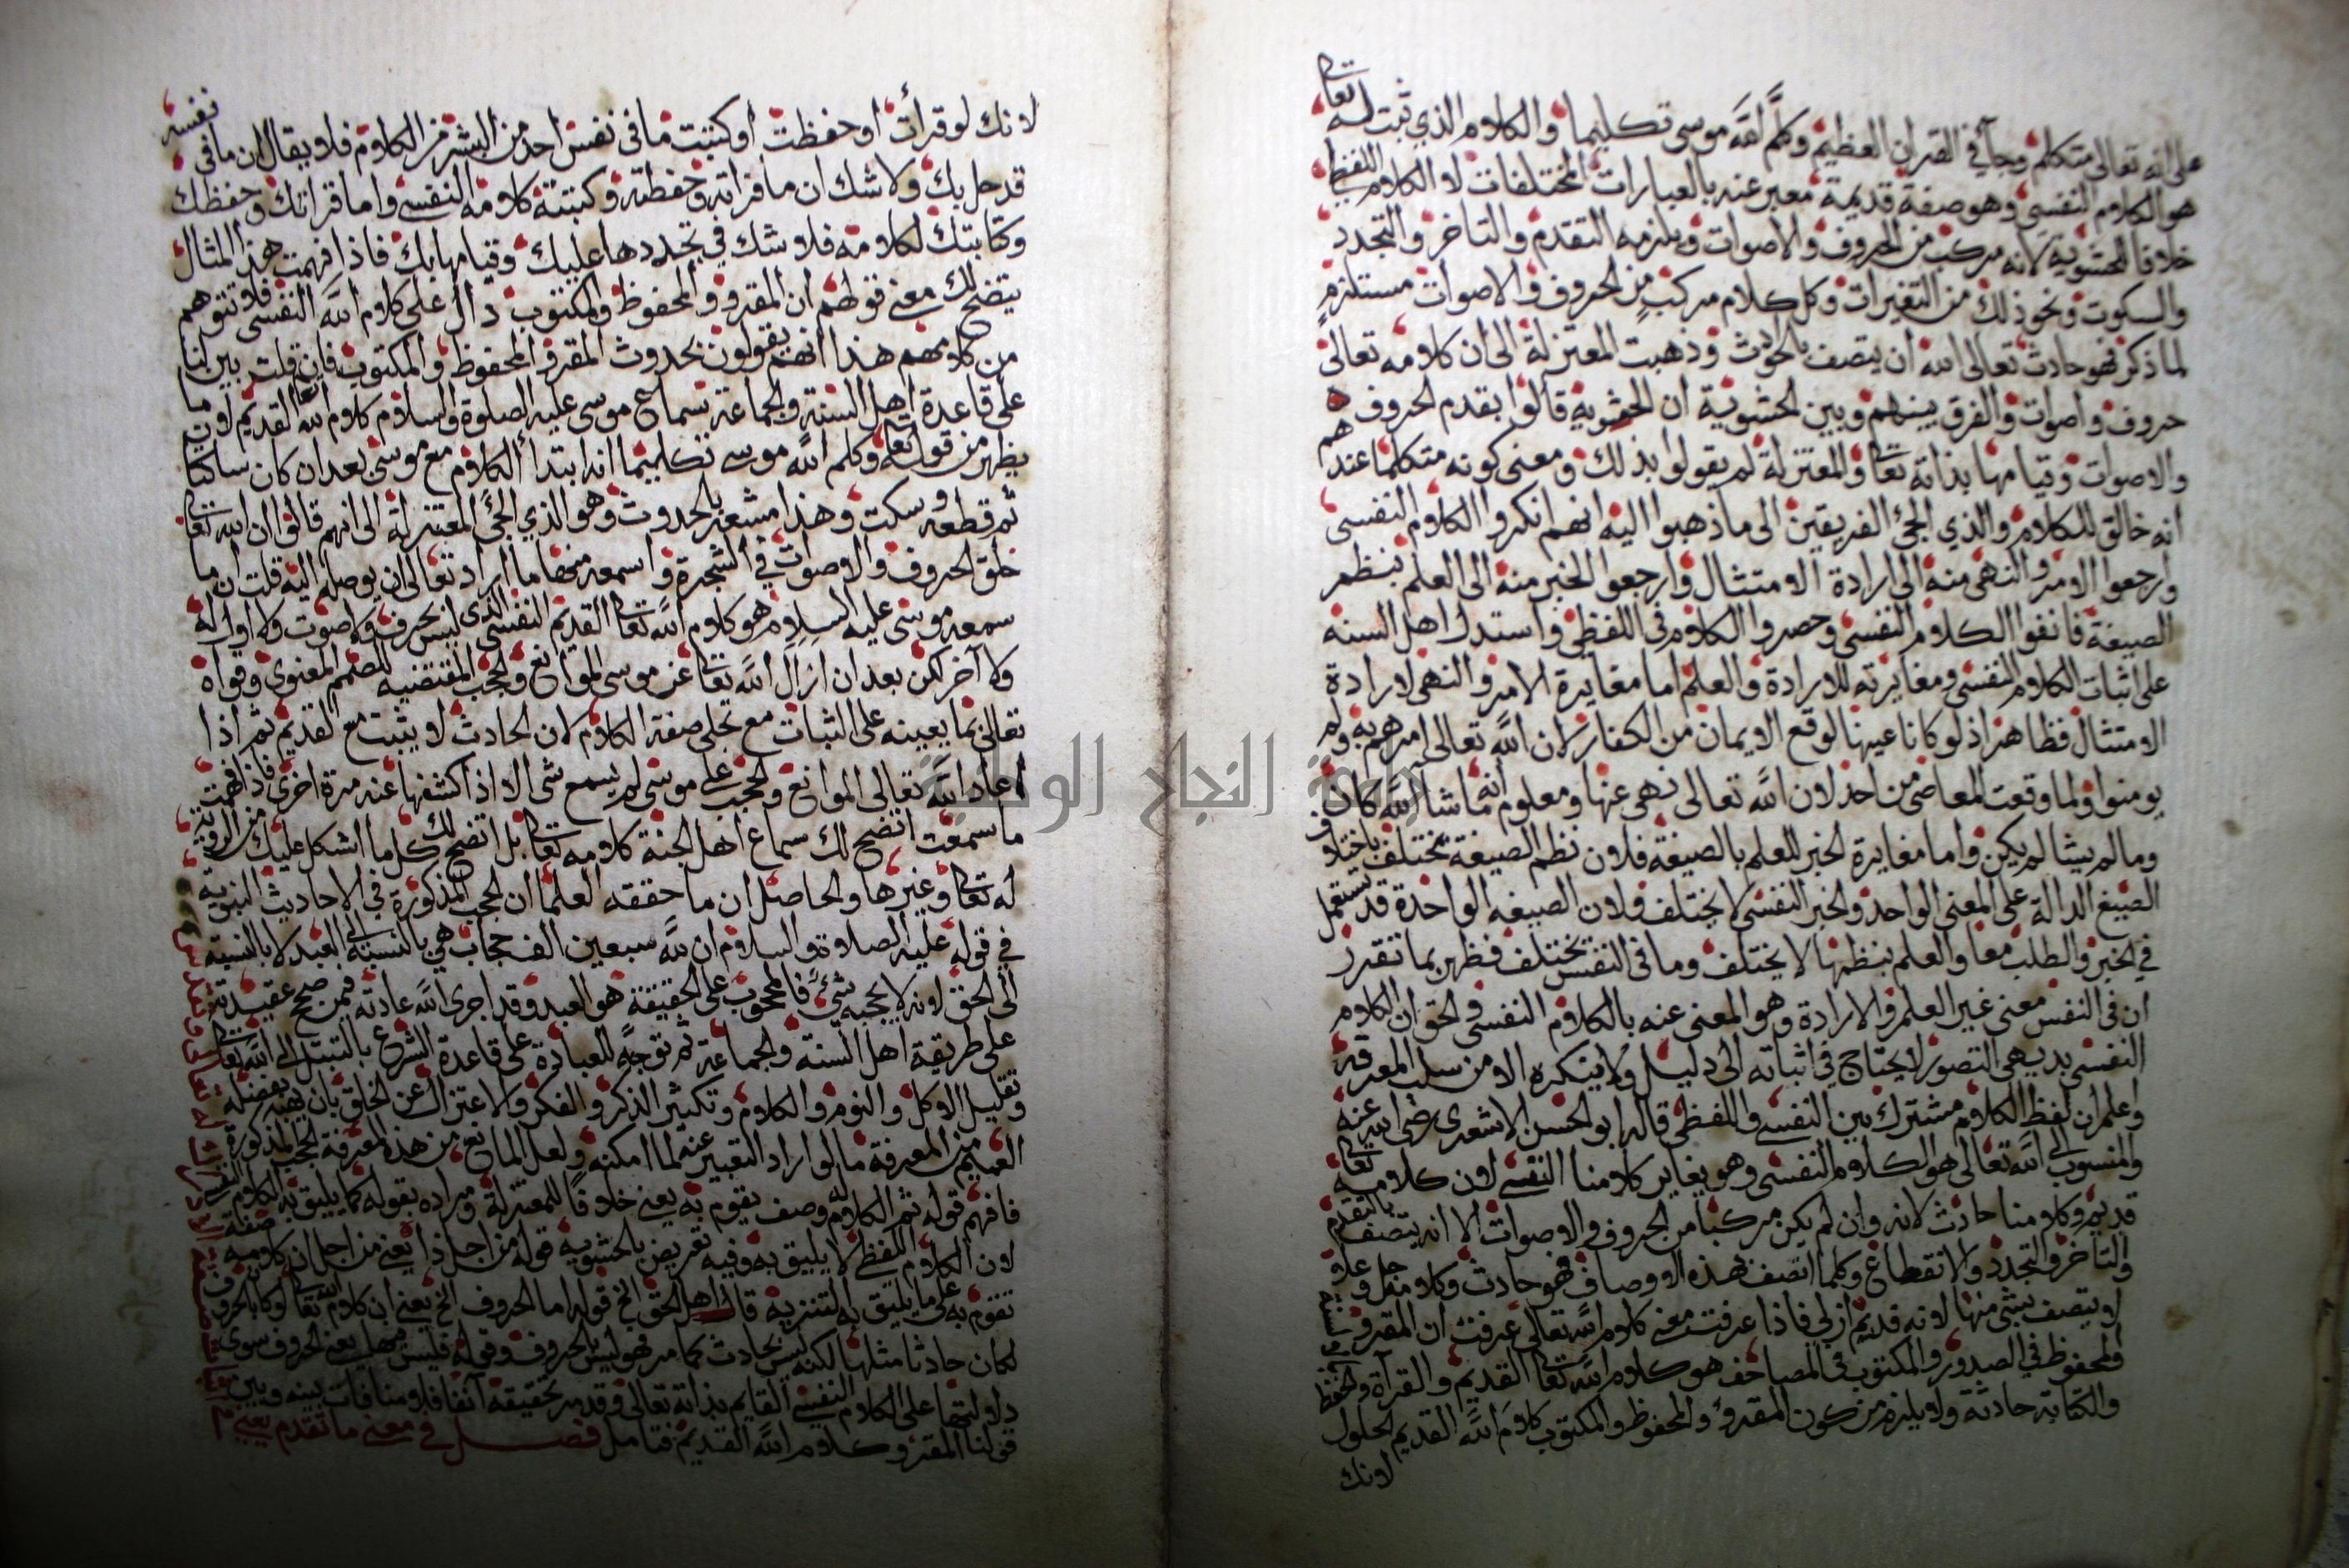 على انه تعالى متكلم وجآء في القران العظيم وكلَّم اللَّه موسى تكليما والكلام الذي ثبت له تعالى
هو الكلام النفسى وهو صفة قديمة معبر عنه بالعبارات المختلفات لا الكلام اللفظي
خلافا للحشوية لانه مركب من الحروف والاصوات ويلزمه التقدم والتاخر والتجدد
والسكوت ونحو ذلك من التغيرات وكل كلام مركب من الحروف والاصوات مستلزم
لما ذكر فهو حادث تعالى الله ان يتصف بالحوادث وذهبت المعتزلة الى ان كلامه تعالى
حروف واصوات والفرق بينهم وبين الحشوية ان الحشوية قالوا بقدم الحروف
والاصوات وقيامها بذاته تعالى والمعتزلة لم يقولوا بذلك ومعنى كونه متكلما عندهم
انه خالق للكلام والذي الجئ الفريقين الى ما ذهبوا اليه انهم انكروا الكلام النفسى
وارجعوا الامر والنهى منه الى ارادة الامتثال وارجعوا الخبر منه الى العلم بنظم
الصيغة فانفوا الكلام النفسى وحصروا الكلام في اللفظي واستدل اهل السنه
على اثبات الكلام النفسى ومغايرته للارادة والعلم اما مغايرة الامر والنهى لارادة
الامتثال فظاهر اذ لو كانا عينها لوقع الايمان من الكفار لان اللَّه تعالى امرهم به ولم
يومنوا ولما وقعت المعاصى من احد لان اللَّه تعالى نهى عنها ومعلوم انه ما شا اللَّه كان
وما لم يشا لم يكن واما مغايرة الخبر للعلم بالصيغة فلان نظم الصيغة تختلف باختلاف
الصيغ الدالة على المعنى الواحد والخبر النفسى لا يختلف ولان الصيغه الواحدة قد تستعمل
في الخبر والطلب معا والعلم بنظمها لا يختلف وما فى النفس تختلف فظهر بما تقرر
ان فى النفس معنى غير العلم والارادة وهو المعنى عنه بالكلام النفسى والحق ان الكلام
النفسى بديهى التصور لا يحتاج في اثباته الى دليل ولا ينكره الا من سلب المعرفة
واعلم ان لفظ الكلام مشترك بين النفسي واللفظي قاله ابو الحسن الاشعرى رضى الله عنه
والمنسوب الى اللَّه تعالى هو الكلام النفسى وهو يغاير كلامنا النفسي لان كلامه تعالى
قديم وكلامنا حادث لانه وان لم يكن مركبا من الحروف والاصوات الا انه يتصف بالتقدم
والتاخر والتجدد والانقطاع وكلما اتصف بهذه الاوصاف فهو حادث وكلامه جل وعلا
لا يتصف بشئ منها لانه قديم ازلي فاذا عرفت معنى كلام اللَّه تعالى عرفت ان المقرو
والمحفوظ في الصدور والمكتوب في المصاحف هو كلام اللَّه تعالى القديم والقرآة والحفظ
والكتابة حادثة ولا يلزم من كون المقروء والمحفوظ والمكتوب كلام اللَّه القديم الحلول
لانك
لانك لو قرأت او حفظت او كتبت ما فى نفس احد من البشر من الكلام فلا يقال ان ما فى نفسه
قد حل بك ولا شك ان ما قراته وحفظته وكتبته كلامه النفسي واما قراتك وحفظك
وكتابتك لكلامه فلا شك في تجددها عليك وقيامها بك فاذا فهمت هذا المثال
يتضح لك معنى قولهم ان المقرو والمحفوظ والمكتوب دال على كلام اللَّه النفسي فلا تتوهم
من كلامهم هذا انهم يقولون بحدوث المقرو والمحفوظ والمكتوب فان قلت بين لنا
على قاعدة اهل السنة والجماعة سماع موسى عليه الصلوة والسلام كلام اللَّه القديم لان ما
يظهر من قوله تعالى وكلم اللَّه موسى تكليما انه ابتدأ الكلام مع موسى بعد ان كان ساكتا
ثم قطعه وسكت وهذا مشعر بالحدوث وهو الذي الجئ المعتزلة الى انهم قالوا ان الله تعالى
خلق الحروف والاصوات في الشجرة واسمعه منها ما اراد تعالى ان يوصله اليه قلت ان ما
سمعه موسى عليه السلام هو كلام اللَّه تعالى القديم النفسى الذى ليس بحرف ولا صوت ولا اول له
ولا آخر لكن بعد ان ازال اللَّه تعالى عن موسى الموانع والحجب المقتضيه للصمم المعنوى وقواه
تعالى بما يعينه على الثبات مع تجلى صفة الكلام لان الحادث لا يثبت مع القديم ثم اذا
اعاد اللَّه تعالى الموانع والحجب على موسى لم يسمع شى الا اذا كشفها عنه مرة اخرى فاذا فهمت
ما سمعت اتضح لك سماع اهل الجنة كلامه تعالى بل اتضح لك كل ما اشكل عليك من الروية
له تعالى وغيرها والحاصل ان ما حققه العلما ان الحجب المذكورة في الاحاديث النبوية
في قوله عليه الصلاة والسلام ان للَّه سبعين الف حجاب هي بالنسبة الى العبد لا بالنسبة
الى الحق لانه لا يحجبه شئ فالمحجوب على الحقيقة هو العبد وقد اجرى اللَّه عادته فيمن صحح عقيدته
على طريقة اهل السنة والجماعة ثم توجه للعبادة على قاعدة الشرع بالتبتل الى اللَّه تعالى
وتقليل الاكل والنوم والكلام وتكثير الذكر والفكر والاعتزال عن الخلق بان يهبه بفضله
العميم من المعرفة ما لو اراد التعبير عنه لما امكنه ولعل المانع من هذه المعرفة الحجب المذكورة
فافهم قوله ثم الكلام له وصف يقوم به يعنى خلافا للمعتزلة ومراده بقوله كما يليق به الكلام النفسى
لان الكلام اللفظي لا يليق به وفيه تعريض بالحشويه قوله من اجل ذا يعنى من اجل ان كلامه صفة
تقوم به على ما يليق به التنزيه قال اهل الحق الخ قوله اما الحروف الخ يعنى ان كلام اللَّه تعالى لو كان بالحروف
لكان حادثا مثلها لكنه ليس بحادث كما مر فهو ليس بالحروف وقوله فليس هي يعنى الحروف سوى
دلولتها على الكلام النفسي القايم بذاته تعالى وقد مر تحقيقه آنفا فلا منافات بينه وبين
قولنا المقرو كلام اللَّه القديم فتامل فصل في معنى ما تقدم يعنى